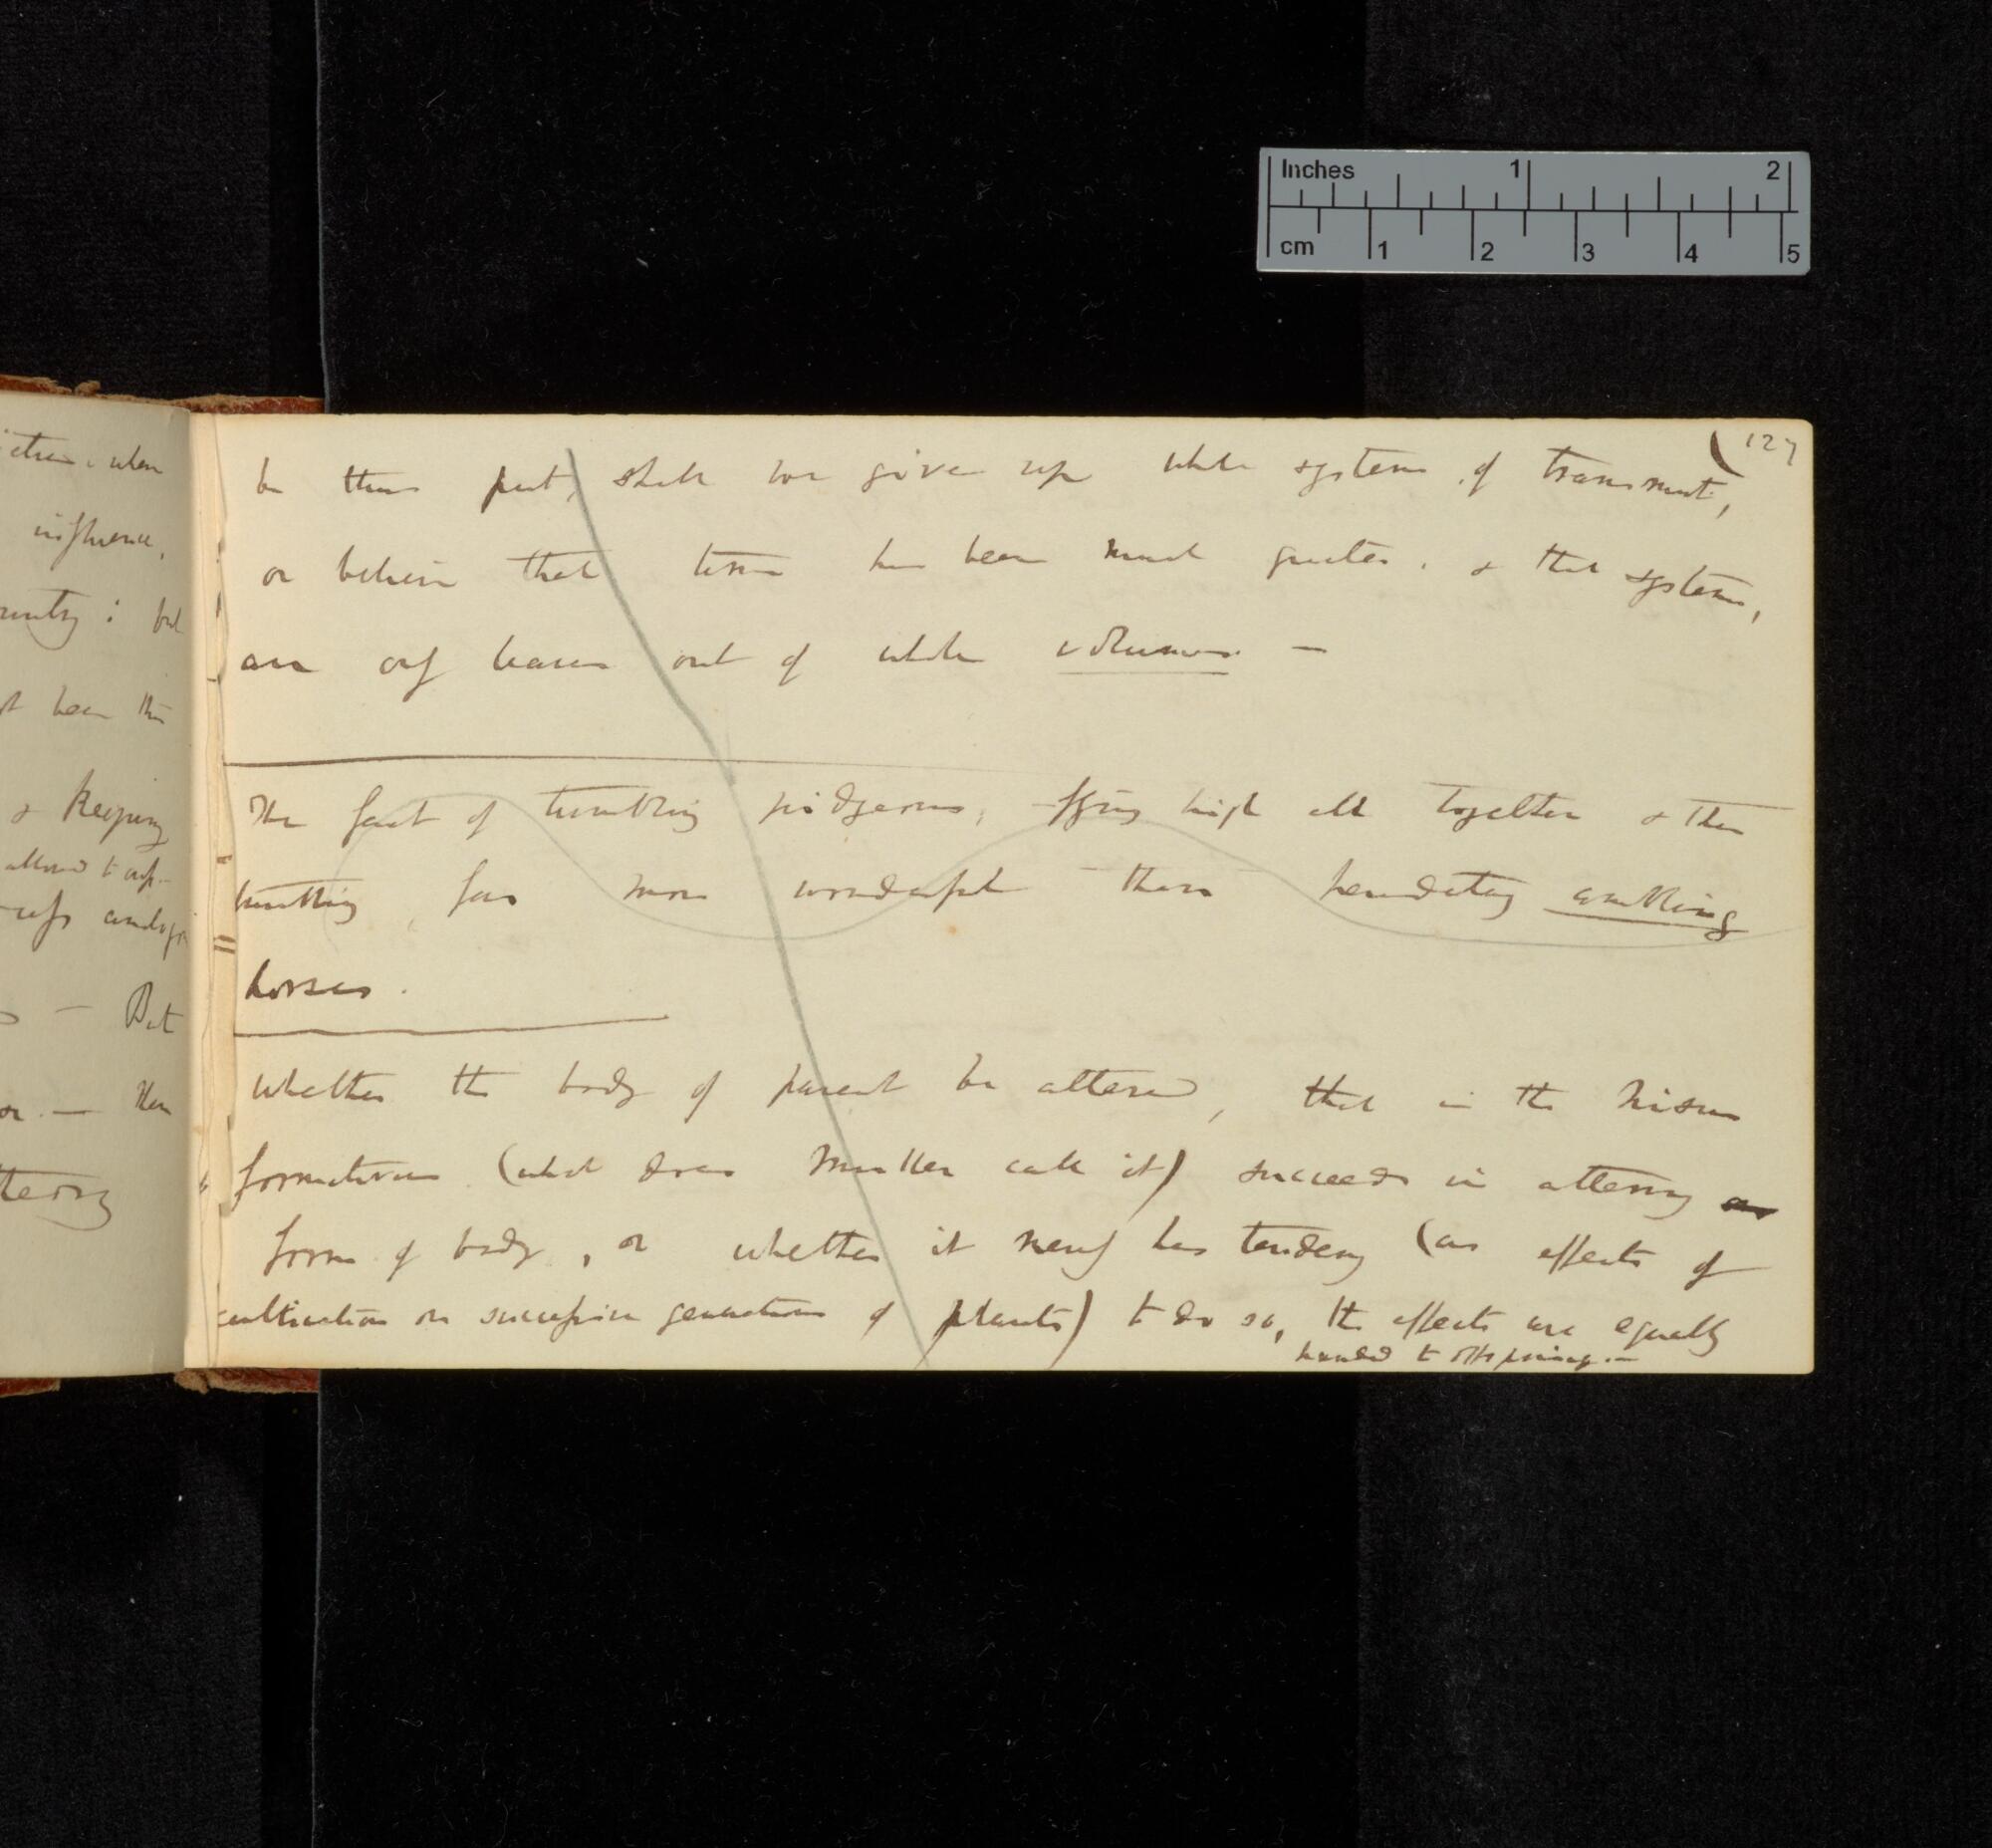 Inches 1 2
cm 1 2 3 4 5
when
influence,
: but
been the
& Keeping
allowed to
— But
— Then
127
be thus put, shall we give up whole system of transmut,
or believe that time has been much greater, & that systems,
are only leaves out of whole volumes. —
The fact of tumbling pidgeons, flying high all together & then
tumbling, far more wonderful than heredetary ambling
horses.
Whether the body of parent be altered, that in the nisus
formativus (what does Muller call it) succeeds in altering
form of body, or whether it merely has tendency (as effects of
cultivation on successive generations of plants) to do so, the effects are equally
handed to offspring. —